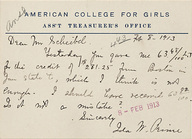 AMERICAN COLLEGE FOR GIRLS
ASST TREASURER'S OFFICE
Feb 8. 1913
Dear Mr
Yesterday you gave me 63
for the credit of $281.25 from Boston
State, which I think is not
enough. I should have received
Is it not a mistake?
8 FEB 1913
Sincerely
Ida W. Prime